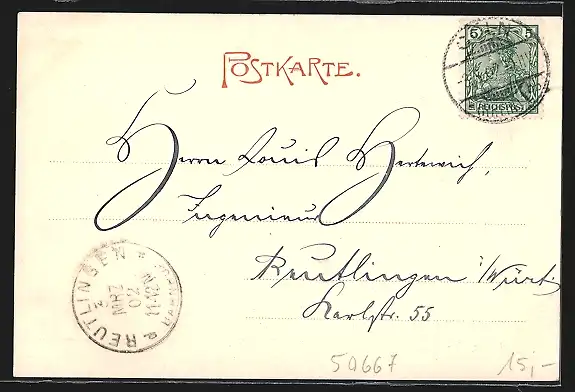 5 5
REICHSPOST
POSTKARTE.
Herrn Louis
Ingenieur
Reutlingen i/Württ.
Karlstr. 55
REUTLINGEN
MRZ
02
11-12
50667
15,-